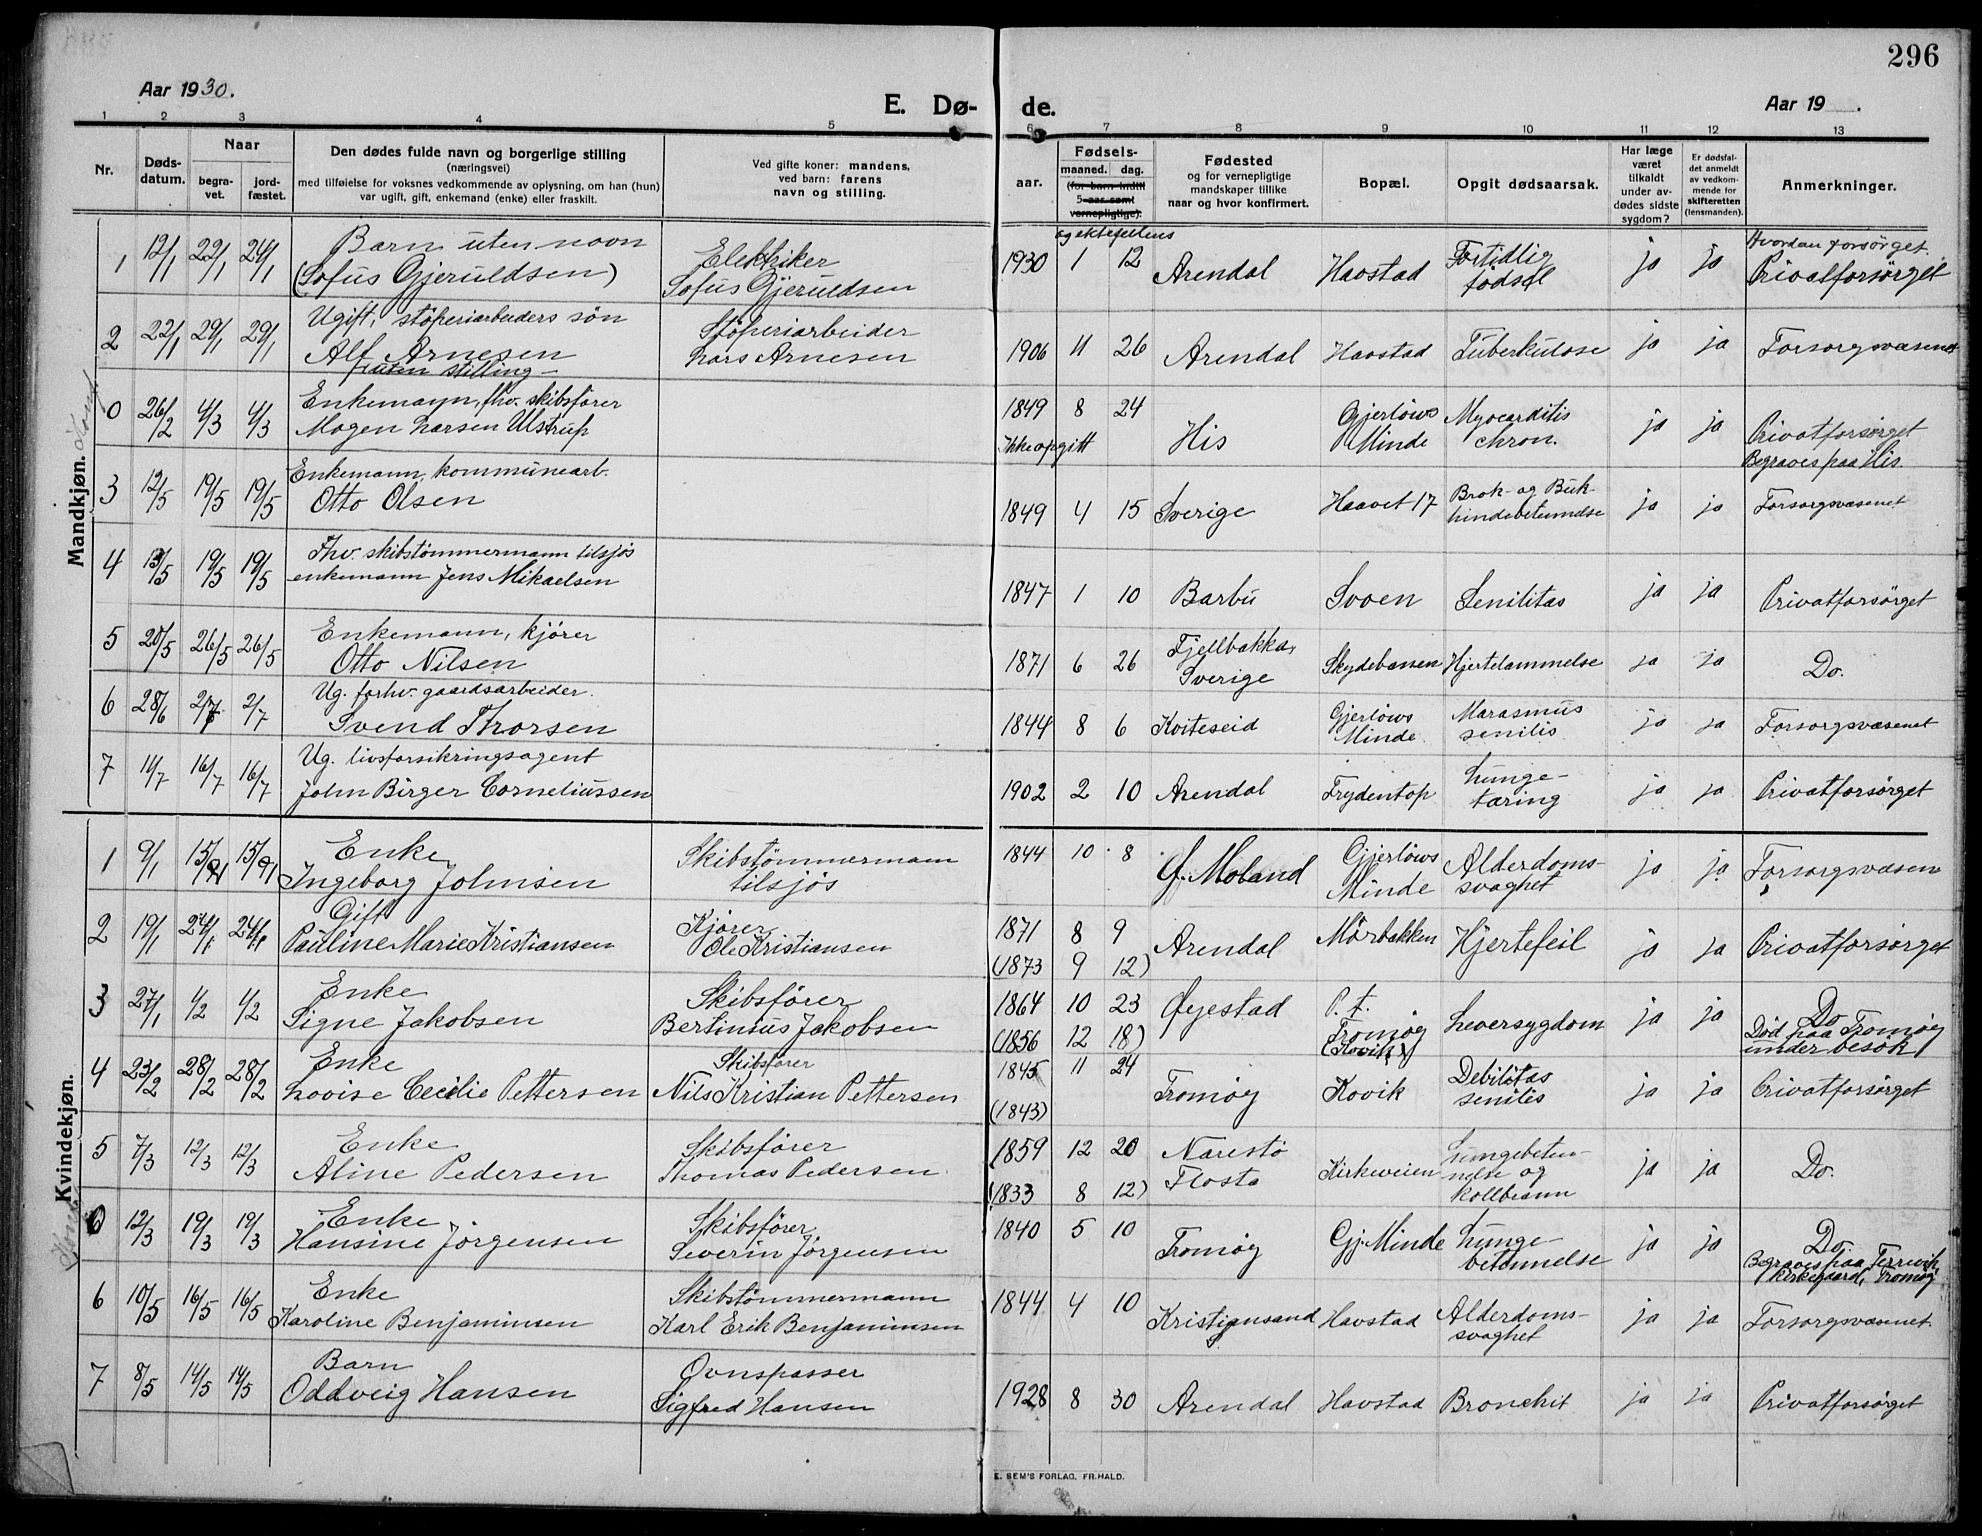 296
Aar 1930.
E. Dø- de.
Aar 19 .
1 2 3 4 5 6 7 8 9 10 11 12 13
Nr.
Døds-
datum.
Naar
begra-
vet.
jord-
fæstet.
Den dødes fulde navn og borgerlige stilling
(næringsvei)
med tilføielse for voksnes vedkommende av oplysning, om han (hun)
var ugift, gift, enkemand (enke) eller fraskilt.
Ved gifte koner: mandens,
ved barn: farens
navn og stilling.
Fødsels-
aar.
maaned. dag.
(for barn indtil
5 aar samt
vernepligtige).
og ektefellens
Fødested
og for vernepligtige
mandskaper tillike
naar og hvor konfirmert.
Bopæl.
Opgit dødsaarsak.
Har læge
været
tilkaldt
under av-
dødes sidste
sygdom?
Er dødsfal-
det anmeldt
av vedkom-
mende for
skifteretten
(lensmanden).
Anmerkninger.
Hvordan forsørget.
Mandkjøn.
1 12/1 22/1 24/1 Barn uten navn
(Sofus Gjeruldsen) Elektriker
Sofus Gjeruldsen 1930 1 12 Arendal Havstad Fortidlig
fødsel ja ja Privatforsørget
2 22/1 29/1 29/1 Ugift, støperiarbeiders søn
Alf Arnesen
uten stilling- Støperiarbeider
Lars Arnesen 1906 11 26 Arendal Havstad Tuberkulose ja ja Forsorgsvæsenet
0 26/2 4/3 4/3 Enkemann, fhv. skibsfører
Mogen Larsen Ulstrup 1849 8 24
Ikke opgitt His Gjerløws
Minde Myocarditis
chron. ja ja Privatforsørget
Begraves paa His.
3 12/5 19/5 19/5 Enkemann, kommunearb.
Otto Olsen 1849 4 15 Sverige Haavet 17 Brok- og Buk-
hindebetennelse ja ja Forsorgsvæsenet
4 13/5 19/5 19/5 Fhv. skibstømmermann tilsjøs
enkemann Jens Mikaelsen 1847 1 10 Barbu Svoen Senilitas ja ja Privatforsørget
5 20/5 26/5 26/5 Enkemann, kjører
Otto Nilsen 1871 6 26 Fjellbakka,
Sverige Skydebanen Hjertelammelse ja ja Do.
6 28/6 2/7 2/7 Ug. forhv. gaardsarbeider.
Svend Thorsen 1844 8 6 Kviteseid Gjerløws
Minde Marasmus
senilis ja ja Forsorgsvæsenet
7 11/7 16/7 16/7 Ug. livsforsikringsagent
John Birger Corneliussen 1902 2 10 Arendal Frydentop Lunge-
tæring ja ja Privatforsørget
Kvindekjøn.
1 9/1 15/1 15/1 Enke
Ingeborg Johnsen Skibstømmermann
tilsjøs 1844 10 8 Ø. Moland Gjerløws
Minde Alderdoms-
svaghet ja ja Forsorgsvæsen
2 19/1 24/1 24/1 Gift
Pauline Marie Kristiansen Kjører
Ole Kristiansen 1871 8 9
(1873 9 12) Arendal Mørbakken Hjertefeil ja ja Privatforsørget
3 27/1 4/2 4/2 Enke
Signe Jakobsen Skibsfører
Bertinius Jakobsen 1864 10 23
(1856 12 18) Øyestad P. t.
Tromøy
(Kovik) Leversygdom ja ja Do
Død paa Tromøy
under besøk
4 23/2 28/2 28/2 Enke
Lovise Cecilie Pettersen Skibsfører
Nils Kristian Pettersen 1845 11 24
(1843) Tromøy Kovik Debilitas
senilis ja ja Privatforsørget
5 7/3 12/3 12/3 Enke
Aline Pedersen Skibsfører
Thomas Pedersen 1859 12 20
(1833 8 12) Narestø
Flosta Kirkeveien Lungebeten-
nelse og
koldbrann ja ja Do.
0 12/3 19/3 19/3 Enke
Hansine Jørgensen Skibsfører
Severin Jørgensen 1840 5 10 Tromøy Gj. Minde Lunge-
betennelse ja ja Do.
Begraves paa Færvik
kirkegaard, Tromøy
6 10/5 16/5 16/5 Enke
Karoline Benjaminsen Skibstømmermann
Karl Erik Benjaminsen 1844 4 10 Kristiansand Havstad Alderdoms-
svaghet ja ja Forsorgsvæsenet.
7 8/5 14/5 14/5 Barn
Oddveig Hansen Ovnspasser
Sigfred Hansen 1928 8 30 Arendal Havstad Bronchit ja ja Privatforsørget
E. SEM'S FORLAG, FR.HALD.